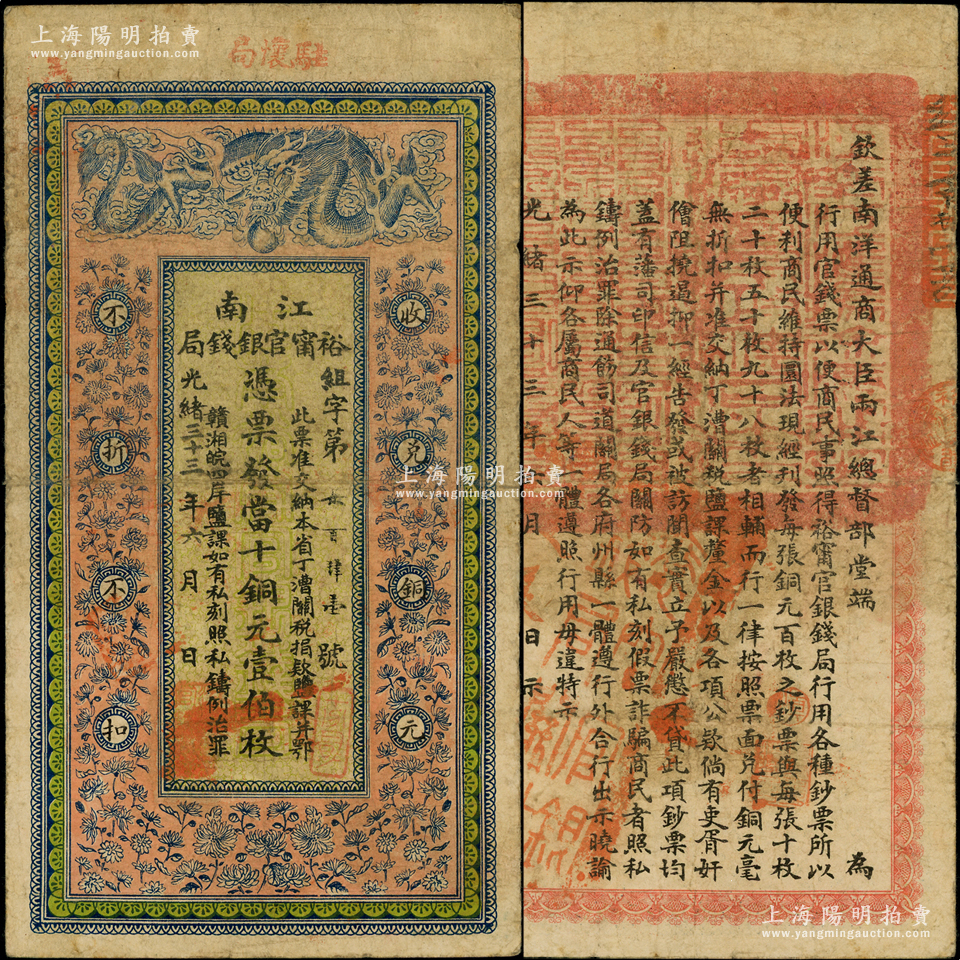 上海陽明拍賣
www.yangmingauction.com
駐懷局
江南
裕甯官銀錢局
組字第 百肆壹號
此票准交納本省丁漕關稅捐欵鹽課并鄂
憑票發當十銅元壹伯枚
贛湘皖岸鹽課如有私刻照私鑄例治罪
光緒三十三年六月 日
收兌銅元
不折不扣
欽差南洋通商大臣兩江總督部堂端 為
行用官錢票以便商民事照得裕甯官銀錢局行用各種鈔票所以
便利商民維持圜法現經刊發每張銅元百枚之鈔票與每張十枚
二十枚五十枚九十八枚者相輔而行一律按照票面兌付銅元毫
無折扣并准交納丁漕關稅鹽課釐金以及各項公欵倘有吏胥奸
儈阻撓逼抑一經告發或被訪聞查實立予嚴懲不貸此項鈔票均
蓋有藩司印信及官銀錢局關防如有私刻假票詐騙商民者照私
鑄例治罪除通飭司道關局各府州縣一體遵行外合行出示曉諭
為此示仰各屬商民人等一體遵照行用毋違特示
光緒三十三年 月 日示
上海陽明拍賣
www.yangmingauction.com
上海陽明拍賣
www.yangmingauction.com